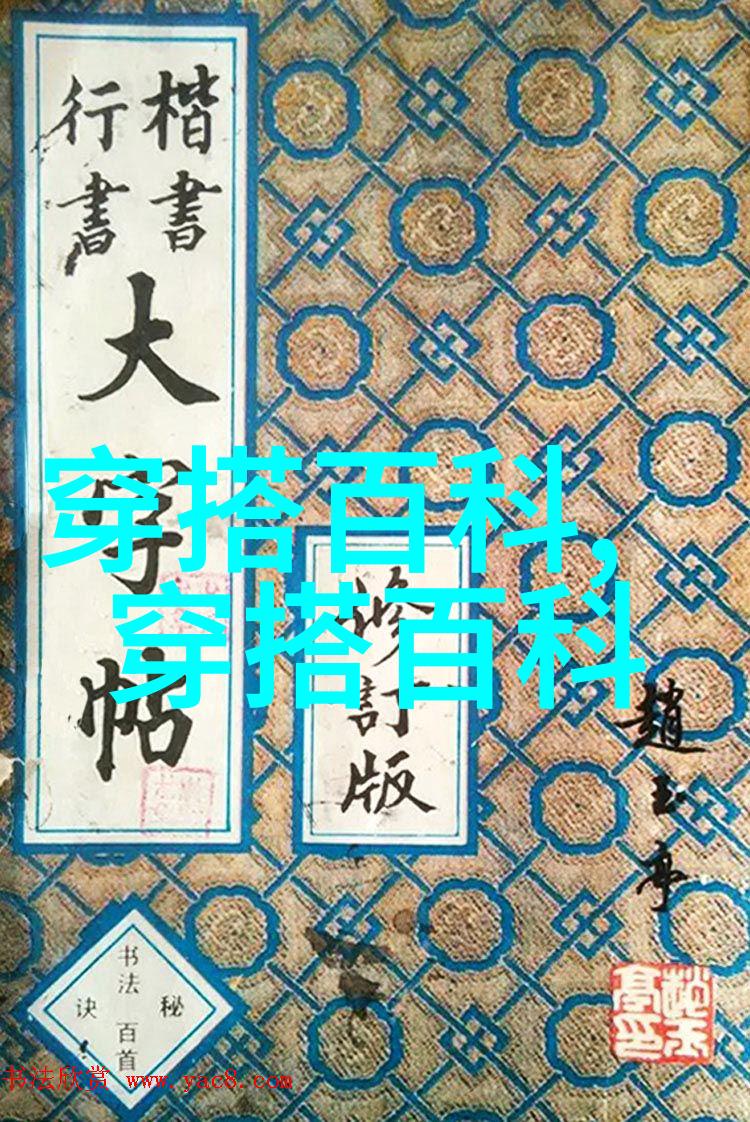 楷書
行書
大字帖
修訂版
趙玉亭
穿搭百科,
穿搭百科
书法
百首
秘
诀
书法欣赏 www.yac8.com